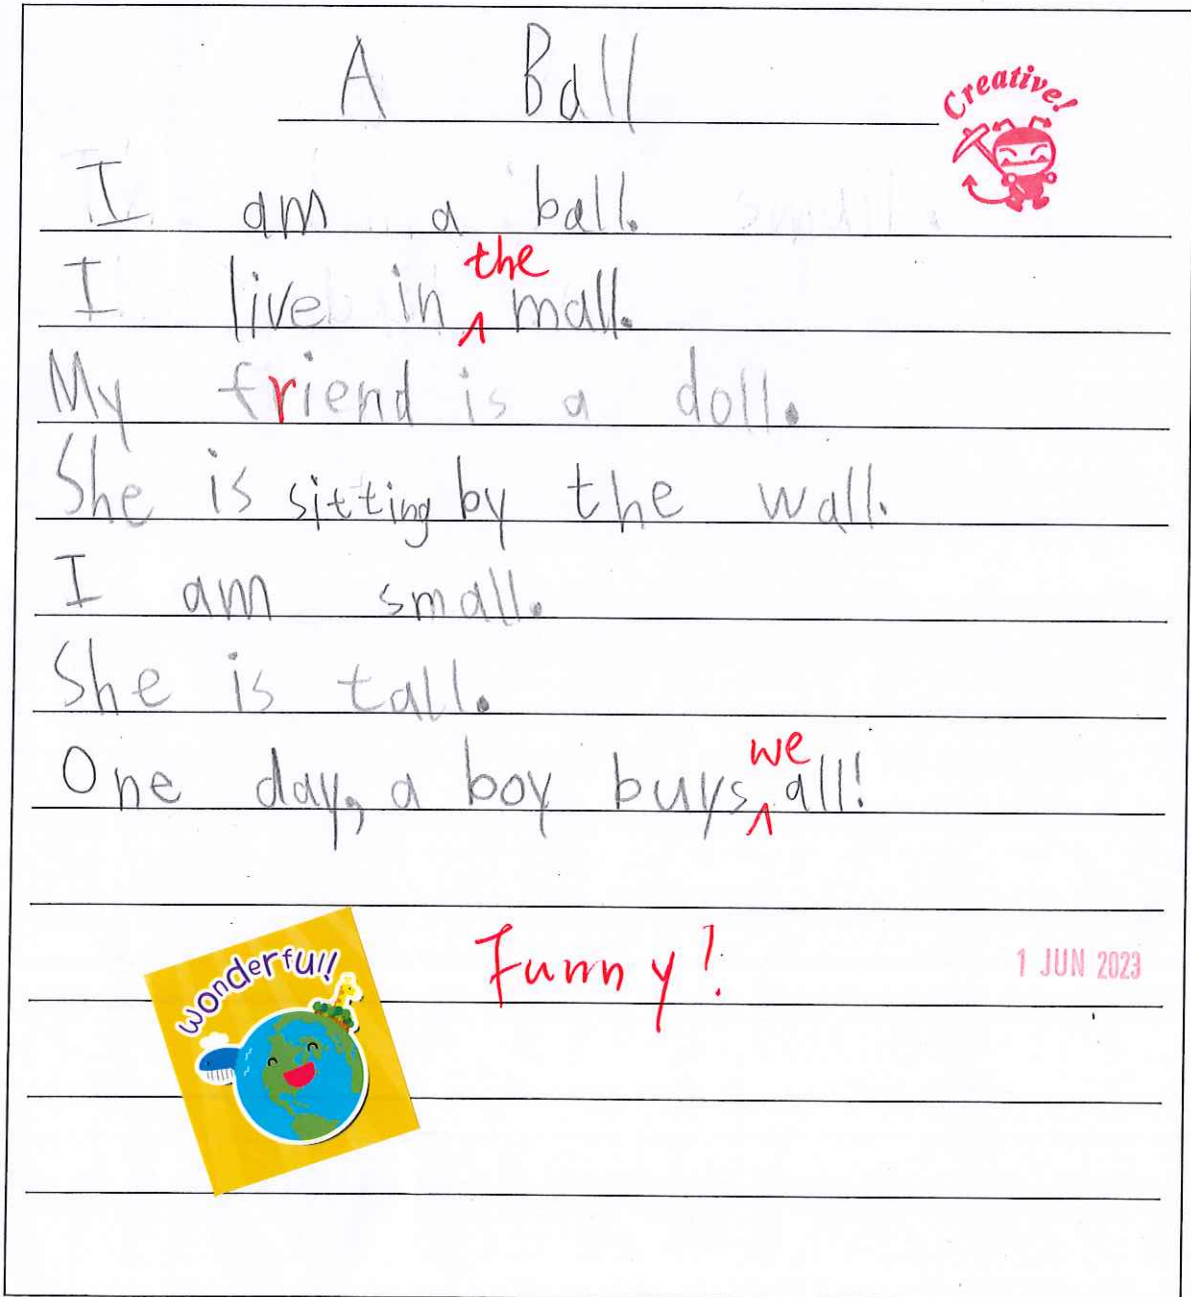 A Ball
Creative!
I am a ball.
the
I live in ∧ mall.
My friend is a doll.
She is sitting by the wall.
I am small.
She is tall.
we
One day, a boy buys ∧ all!
Wonderful!
Funny!
1 JUN 2023